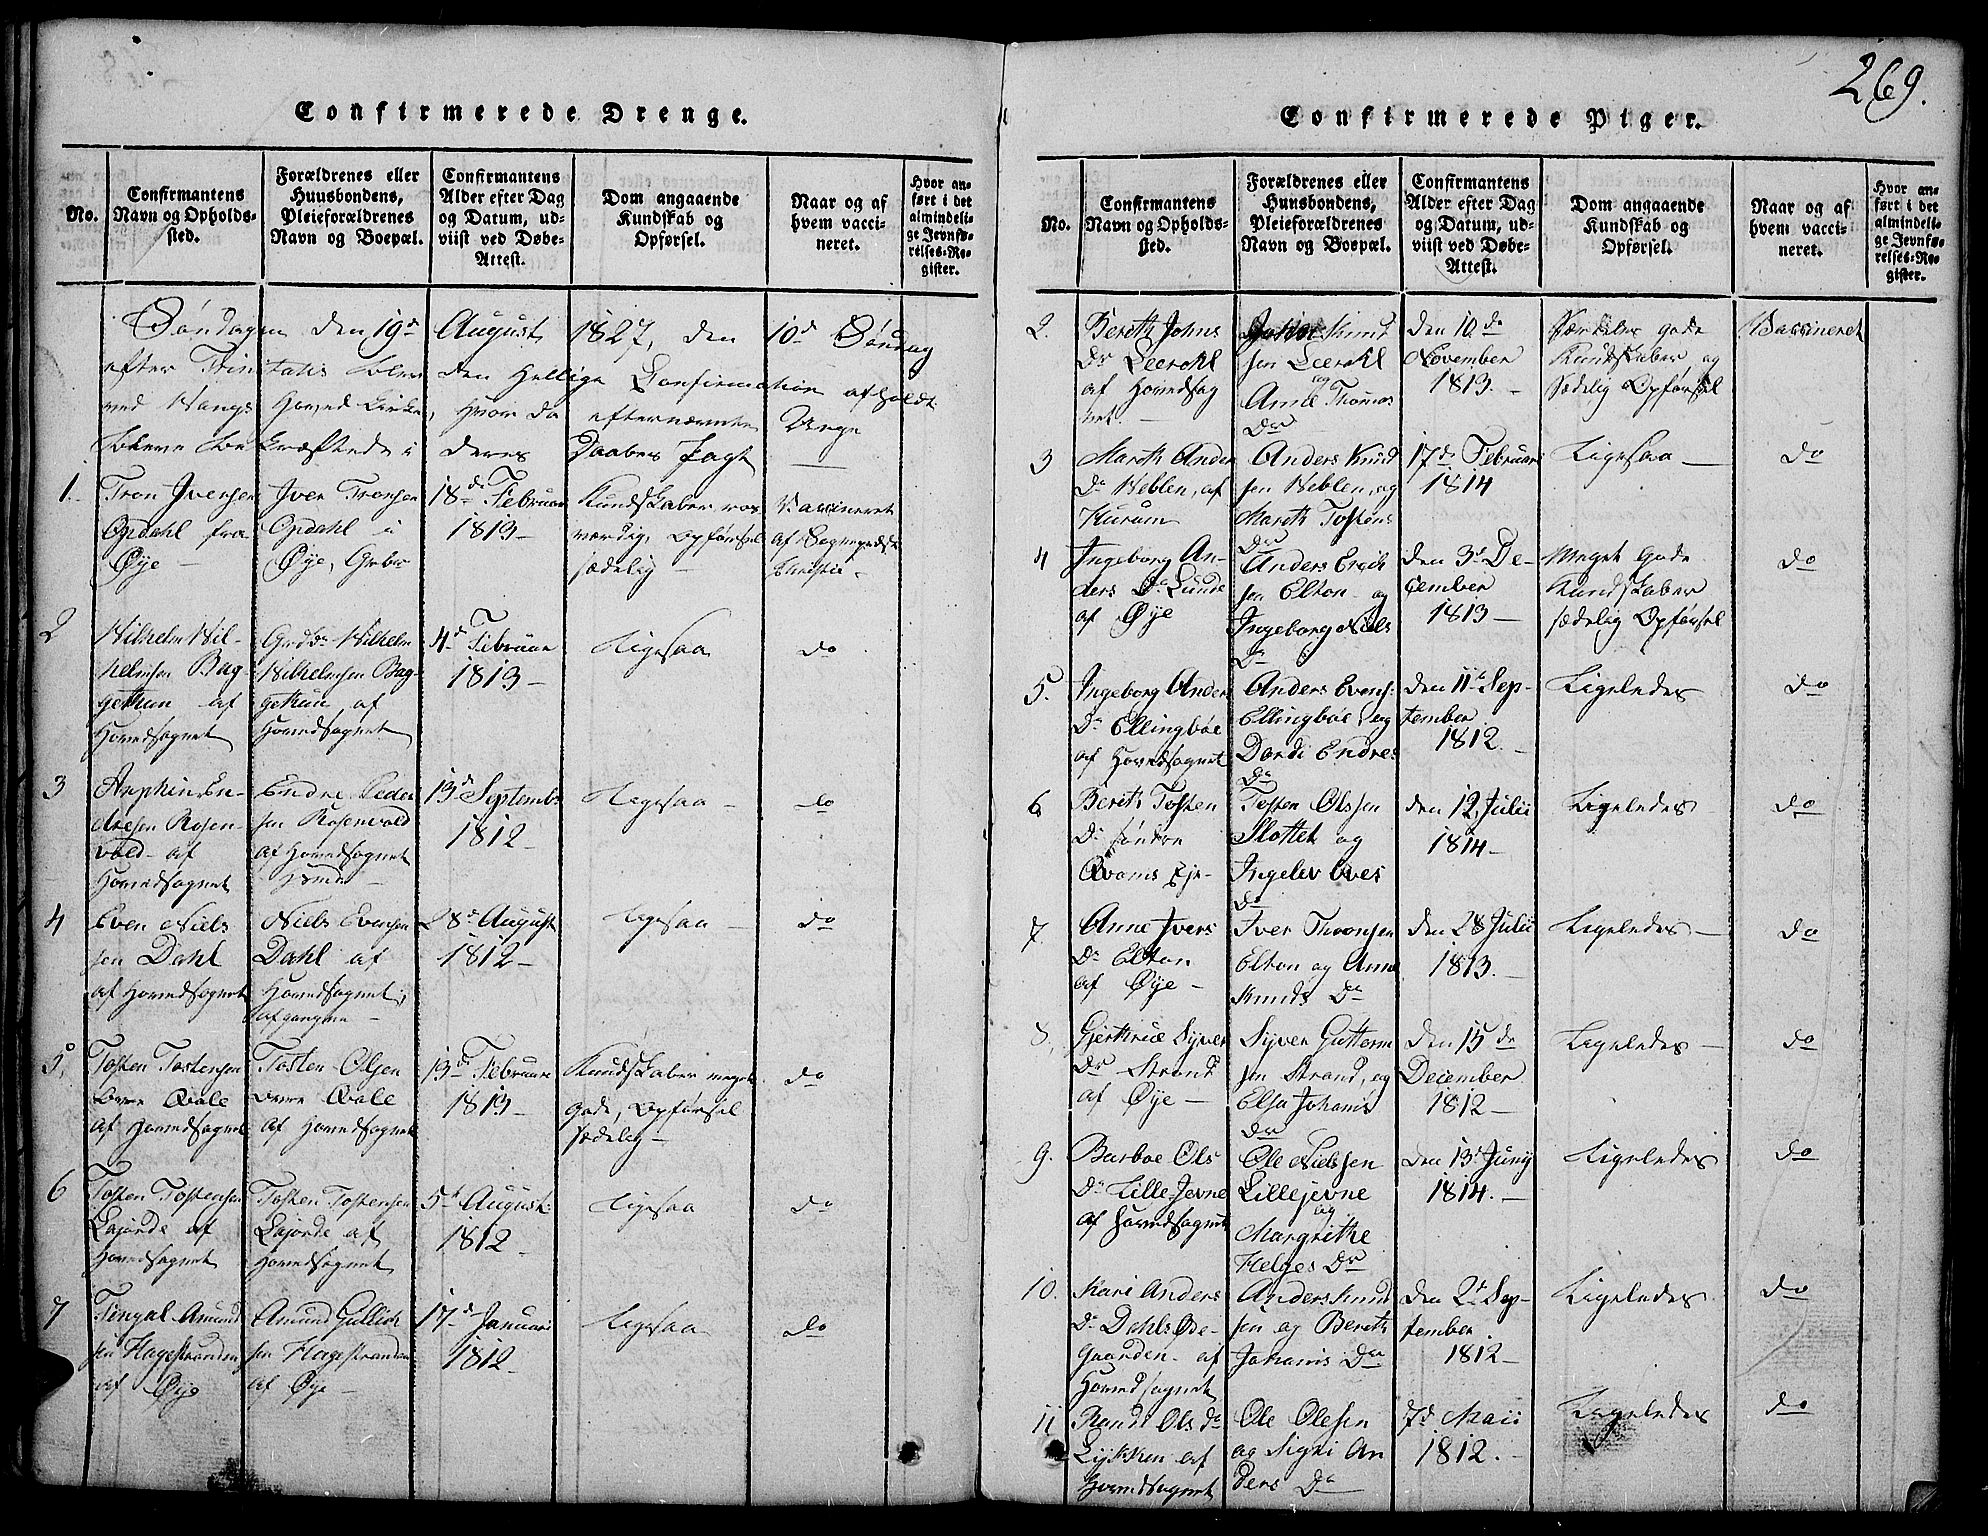 269.
Confirmerede Drenge.
No.
Confirmantens
Navn og Opholds-
sted.
Forældrenes eller
Huusbondens,
Pleieforældrenes
Navn og Boepæl.
Confirmantens
Alder efter Dag
og Datum, ud-
viist ved Døbe-
Attest.
Dom angaaende
Kundskab og
Opførsel.
Naar og af
hvem vacci-
neret.
Hvor an-
ført i det
almindeli-
ge Jevnfø-
relses-Re-
gister.
Søndagen den 19d August 1827, den 10d Søndag
efter Trinitatis blev den Hellige Confirmation afholdt
ved Vangs Hoved Kirke, hvor da efternævnte Unge
bleve bekræftede i deres Daabes Pagt
1.
Tron Iversen
Opdahl fra
Øye
Iver Tronsen
Opdahl i
Øye
18d Februar
1813
Kundskaber ros
værdig, Opførsel
sædelig
Vaccineret
af Sognepræst
Christie
2
Wilhelm Wil-
helmsen Bag-
gethun af
Hovedsognet
Wilhelm
Wilhelmsen Bag-
gethun, af
Hovedsognet
4d Februar
1813
Ligesaa
do
3
En-
dresen Rosen-
vold af
Hovedsognet
Endre Peder
sen Rosenvold
af Hovedsognet
13d Septembr
1812
Ligesaa
do
4
Even Niels
sen Dahl
af Hovedsognet
Niels Evensen
Dahl af
Hovedsognet,
afgangne
28d August
1812
Ligesaa
do
5,
Tosten Tostensen
øvre Qvale
af Hovedsognet
Tosten Olsen
øvre Qvale
af Hovedsognet
13de Februar
1813
Kundskaber meget
gode, Opførsel
sædelig
do
6
Tosten Tostensen
Lajorde af
Hovedsognet
Tosten Tostensen
Lajorde af
Hovedsognet
5d August
1812
Ligesaa
do
7
Fingal Amund
sen Hagestranden
af Øye
Amund Gullich
sen Hagestranden
af Øye
17d Januari
1812
Ligesaa
do
Confirmerede Piger.
No.
Confirmantens
Navn og Opholds-
sted.
Forældrenes eller
Huusbondens,
Pleieforældrenes
Navn og Boepæl.
Confirmantens
Alder efter Dag
og Datum, ud-
viist ved Døbe-
Attest.
Dom angaaende
Kundskab og
Opførsel.
Naar og af
hvem vacci-
neret.
Hvor an-
ført i det
almindeli-
ge Jevnfø-
relses-Re-
gister.
2.
Berith Johns
Dr Leerohl
af Hovedsog
net.
Knud
sen Leerohl
og
Anne Thomas
Dr
den 10de
November
1813.
Særdeles gode
Kundskaber og
Sædelig Opførsel
Vaccineret
3
Marith Anders
Dr Neblen, af
Hurum
Anders Knud
sen Neblen, og
Marith Tostens
Dr
17de Februar
1814
Ligesaa
do
4
Ingeborg An-
ders Dr Lunde
af Øye
Anders Erich
sen Elton og
Ingeborg Niels
Dr
den 3d De-
cember
1813
Meget gode
Kundskaber
sædelig Opførsel
do
5.
Ingeborg Anders
Dr Ellingbøe
af Hovedsognet
Anders Evens.
Ellingbøe og
Dordi Endres
Dr
den 11d Sep-
tember
1812.
Ligeledes
do
6
Berith Tosten
Dr søndre
Qvams Eje
Tosten Olssen
Slottet og
Ingelev Oves
Dr
den 12 Julii
1814
Ligeledes
do
7.
Anne Ivers
Dr Elton
af Øye
Iver Thronsen
Elton og Anne
Knuds Dr
den 28 Julii
1813.
Ligeledes
do
8,
Gjertrud Syver
Dr Strand
af Øye
Syver Guttorm
sen Strand, og
Elsa Johanis
Dr
den 15de
December
1812
Ligeledes
do
9.
Barboe Ols
Dr Lille Jevne
af Hovedsognet
Ole Nielssen
Lillejevne
og
Margrithe
Helges Dr
den 13d Junij
1814.
Ligeledes
do
10.
Kari Anders
Dr Dahls Øde-
gaarden af
Hovedsognet
Anders Knud
sen og Berith
Johanis Dr
den 2d Sep-
tember
1812
Ligeledes
do
11
Randi Ols dr
Lykken af
Hovedsognet
Ole Olesen
og Sigri An
ders Dr
7d Maii
1812.
Ligeledes
do